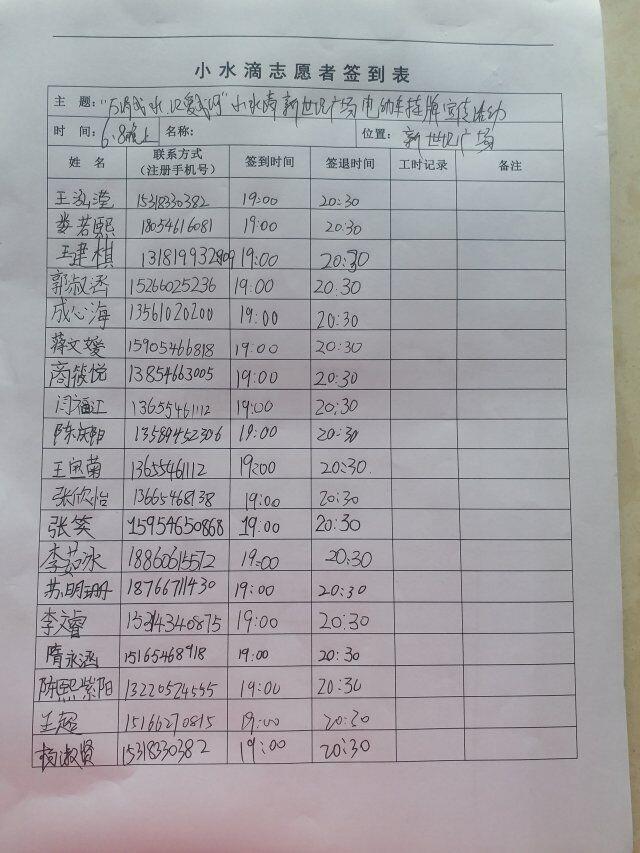 小水滴志愿者签到表
主 题: 小水滴新世纪广场电动车挂牌宣传活动
时 间: 6.8晚上 名称: 位置: 新世纪广场
姓 名 联系方式 签到时间 签退时间 工时记录 备注
(注册手机号)
15318330382 19:00 20:30
娄若熙 18054616081 19:00 20:30
王建棋 19:00 20:30
郭淑涵 15266025236 19:00 20:30
成心海 13561020200 19:00 20:30
蒋文媛 15905466818 19:00 20:30
商筱悦 13854663005 19:00 20:30
闫福江 13655461112 19:00 20:30
陈庆阳 13589452306 19:00 20:30
王鱼菊 13655461112 19:00 20:30
张欣怡 13665468138 19:00 20:30
张笑 15954650868 19:00 20:30
李茹冰 18860615572 19:00 20:30
苏明珊 18766711430 19:00 20:30
李文睿 19:00 20:30
隋永涵 15165468918 19:00 20:30
陈熙紫阳 13220524555 19:00 20:30
王超 15166270815 19:00 20:30
杨淑贤 15318330382 19:00 20:30